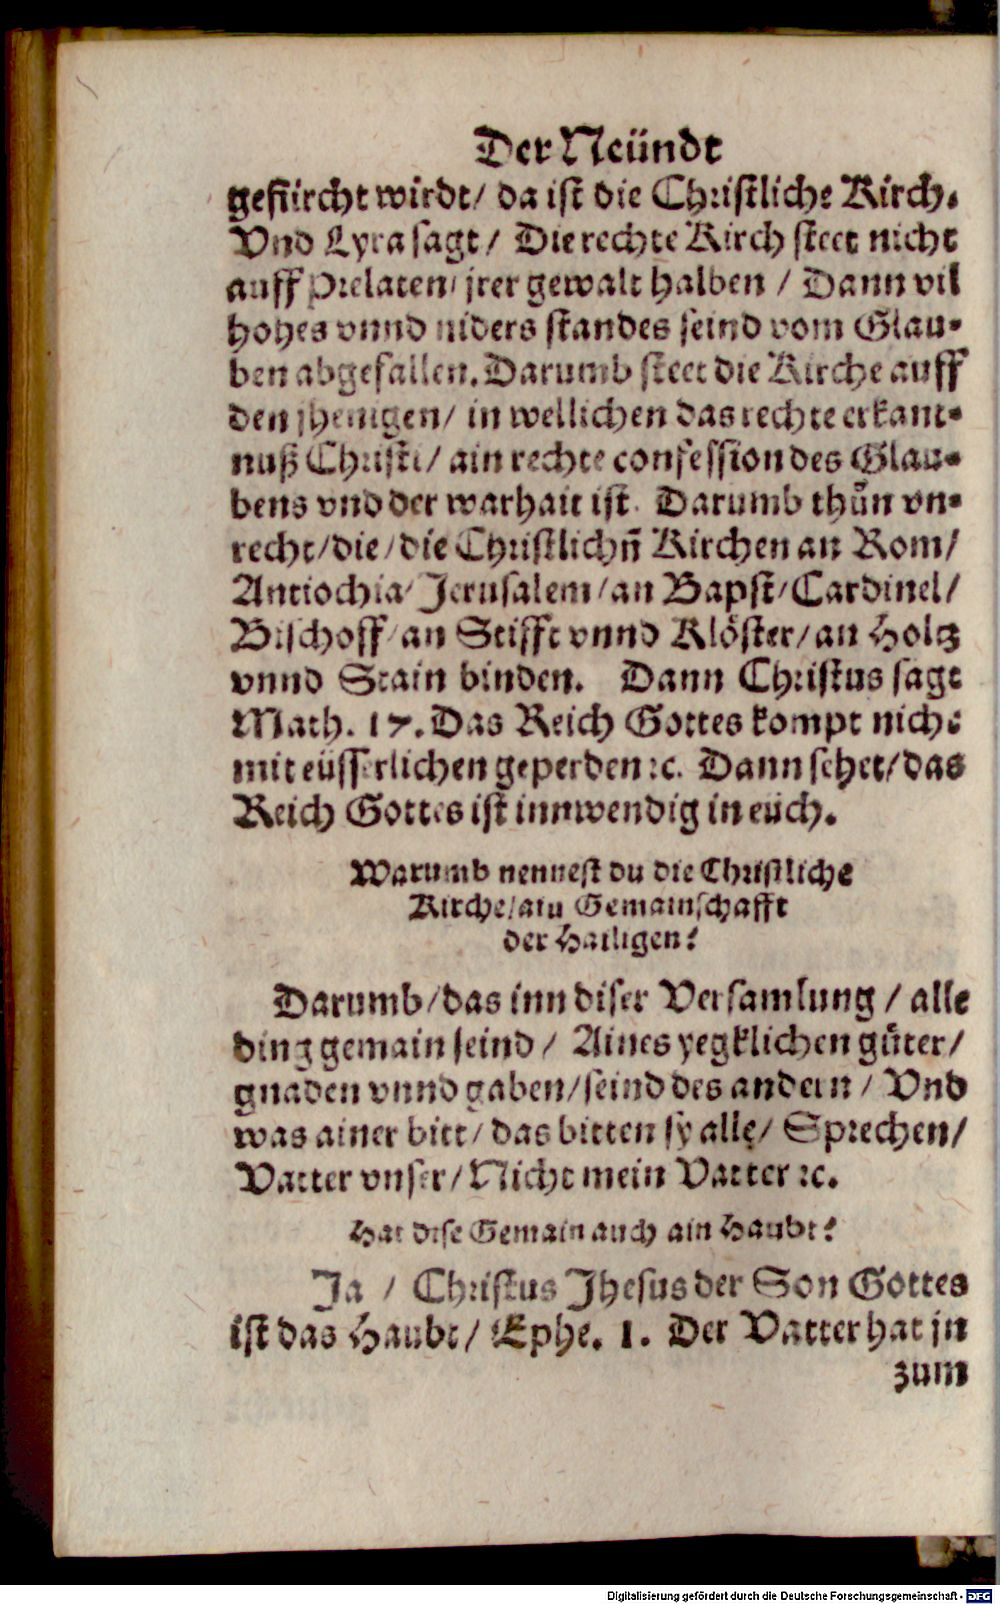 Der Neündt
gefürcht wirdt/ da ist die Christliche Kirch.
Vnd Lyra sagt/ Die rechte Kirch steet nicht
auff Prelaten/ jrer gewalt halben / Dann vil
hohes vnnd niders standes seind vom Glau-
ben abgefallen. Darumb steet die Kirche auff
den jhenigen/ in wellichen das rechte erkant-
nuß Christi/ ain rechte confession des Glau-
bens vnd der warhait ist. Darumb thůn vn-
recht/die/die Christlichñ Kirchen an Rom/
Antiochia/ Jerusalem/an Bapst/Cardinel/
Bischoff/an Stifft vnnd Klöster/an Holtz
vnnd Stain binden. Dann Christus sagt
Math. 17. Das Reich Gottes kompt nicht
mit eüsserlichen geperden ꝛc. Dann sehet/das
Reich Gottes ist innwendig in eüch.
Warumb nennest du die Christliche
Kirche/ain Gemainschafft
der Hailigen?
Darumb/das inn diser Versamlung / alle
ding gemain seind / Aines yegklichen gůter/
gnaden vnnd gaben/seind des andern / Vnd
was ainer bitt/ das bitten sy alle/ Sprechen/
Vatter vnser/Nicht mein Vatter ꝛc.
Hat dise Gemain auch ain Haubt?
Ja / Christus Jhesus der Son Gottes
ist das Haubt/ Ephe. 1. Der Vatter hat jn
zum
Digitalisierung gefördert durch die Deutsche Forschungsgemeinschaft - DFG